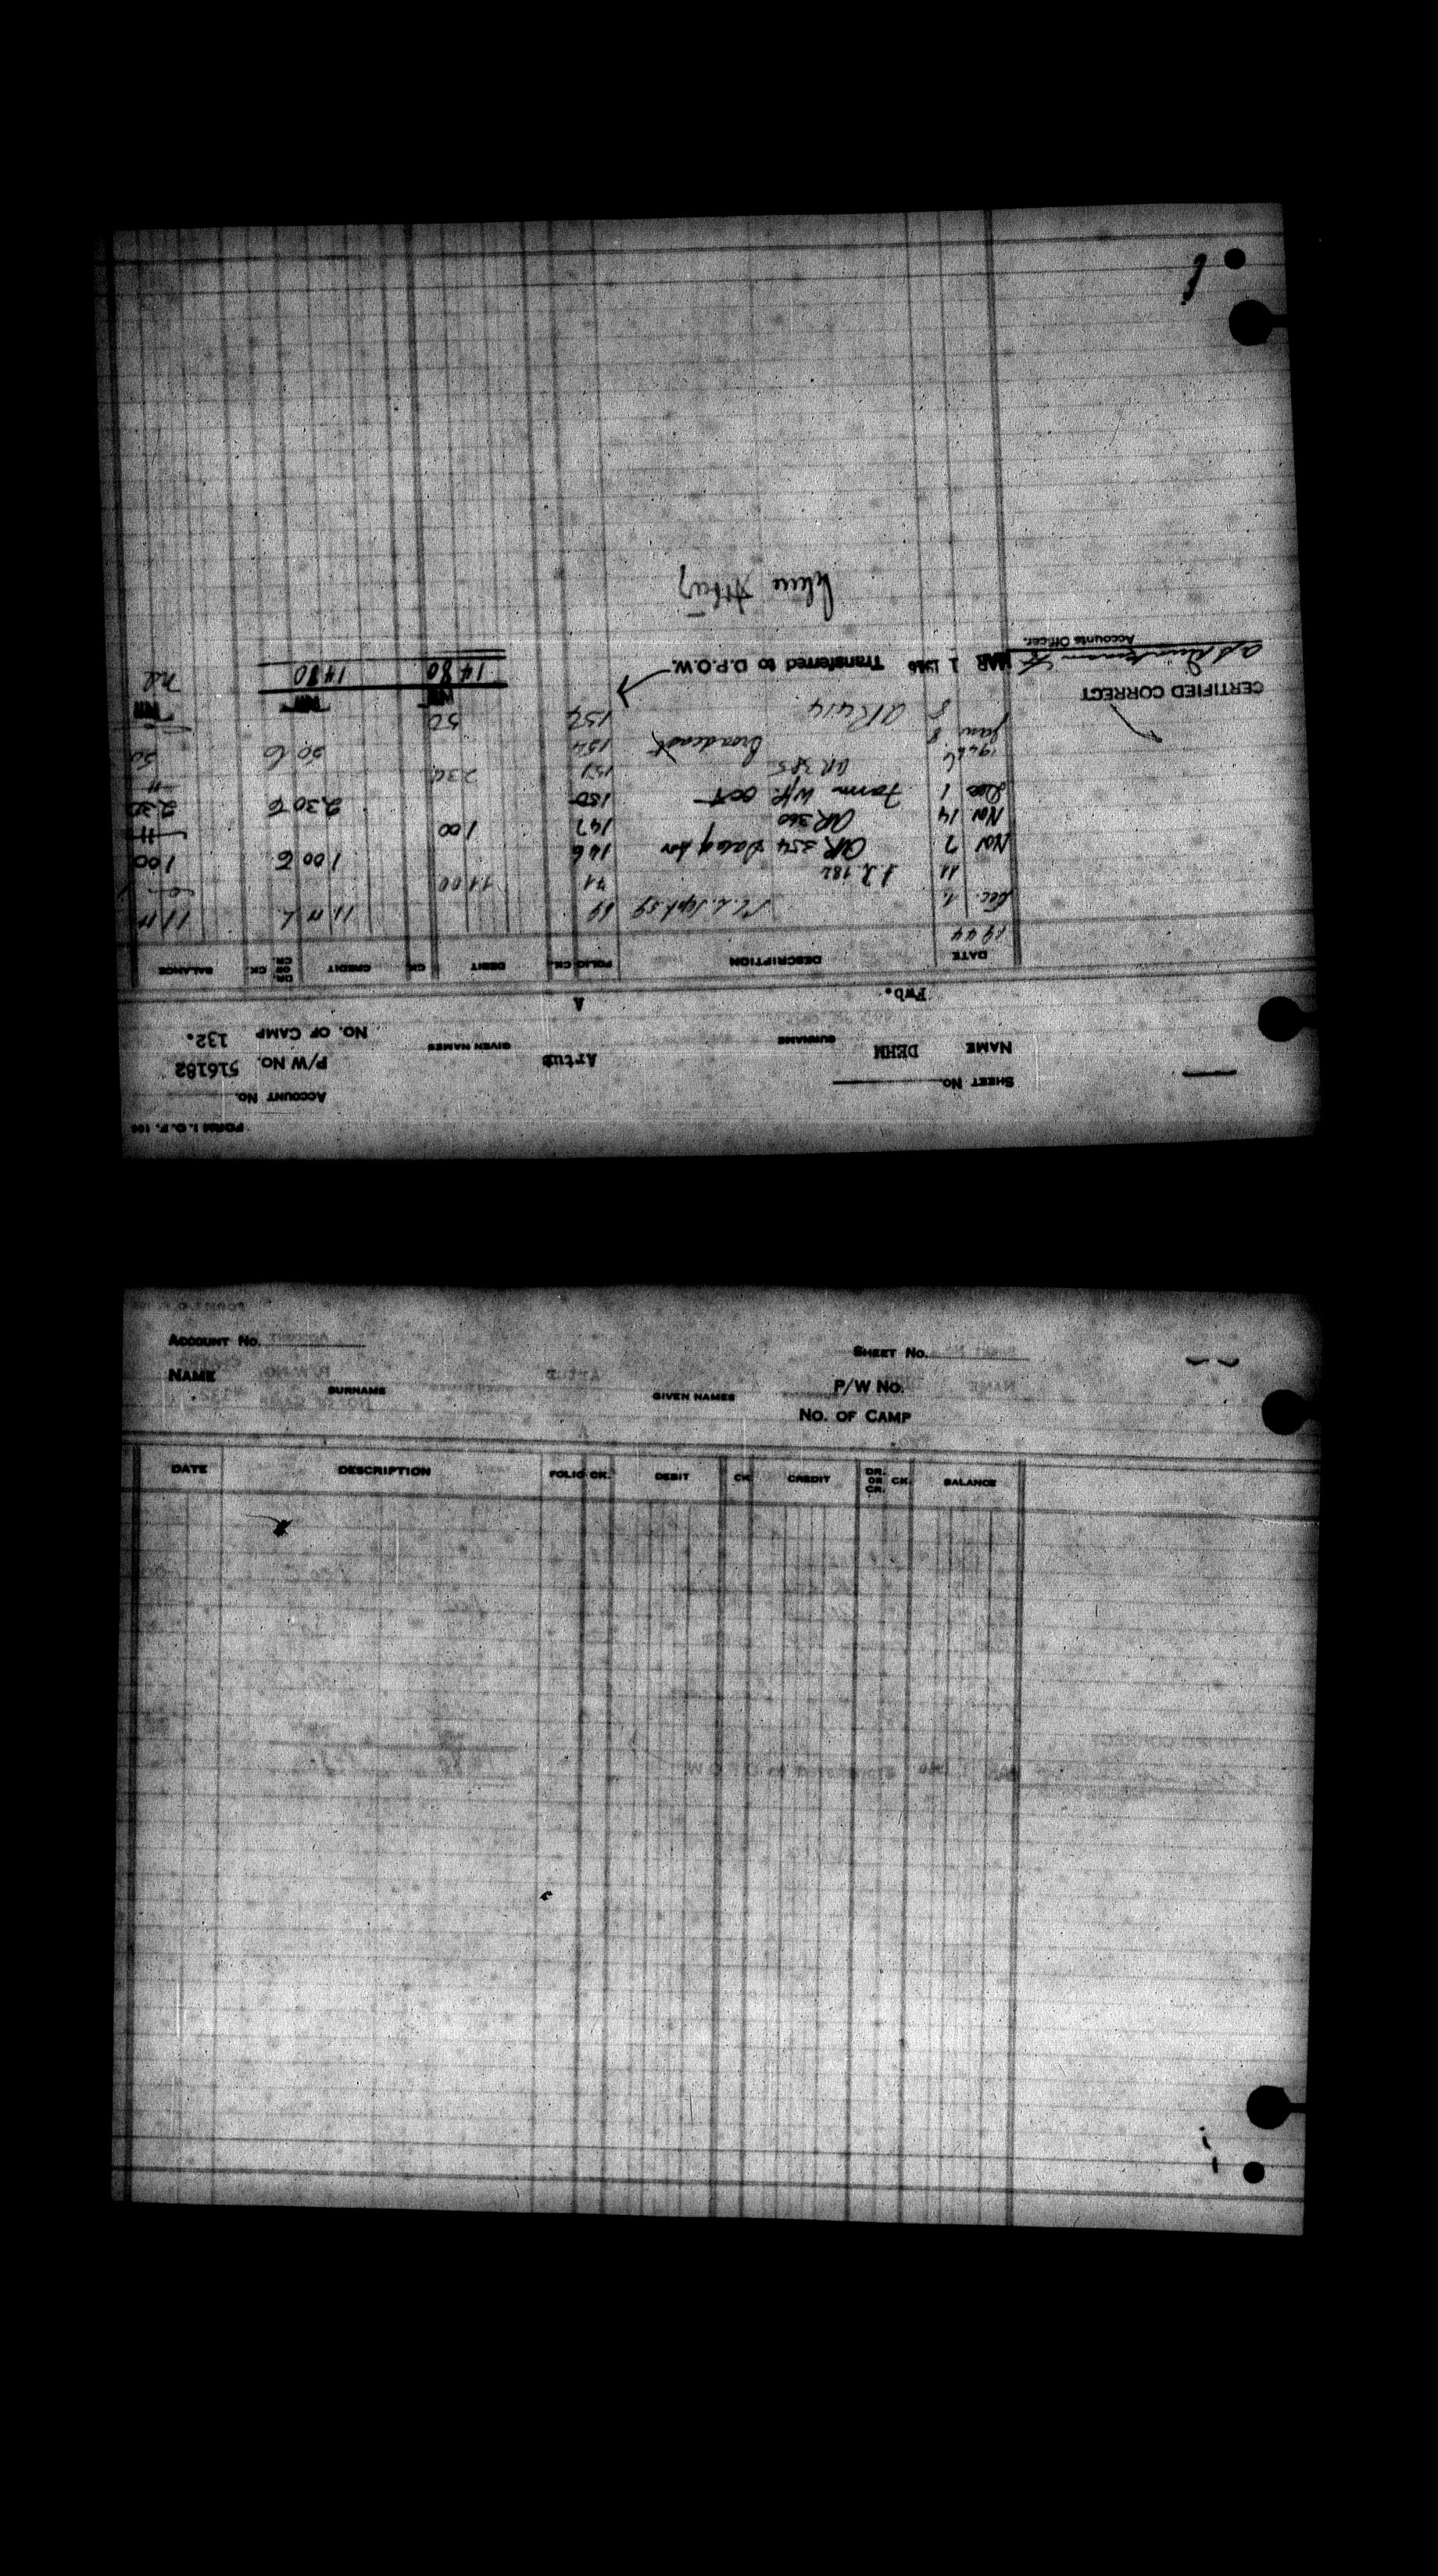 FORM I.O.F. 106
Account No.
SHEET No.
P/W No. 516182
NAME DEHM Artur
SURNAME GIVEN NAMES
NO. OF CAMP 132.
Pwb. A
DATE DESCRIPTION FOLIO CK. DEBIT CK. CREDIT DR. OR CR. CK. BALANCE
1944
Dec. 11 69 11 11
11 182 71 11 00
Nov 7 AR 354 146 1 00 1 00
Nov 14 AR 360 147 1 00
Dec 1 Farm Oct 150 2.30 2.30
AR 385 151 2 30
1946 Broadcast 154 50 50
Jan 8
AR 414 157 50
nil
CERTIFIED CORRECT
MAR 1 1946 Transferred to D.P.O.W. 14 80 14 80
Accounts Officer.
ACCOUNT No.
SHEET No.
NAME
P/W No.
SURNAME GIVEN NAMES
NO. OF CAMP
DATE DESCRIPTION FOLIO CK. DEBIT CK. CREDIT DR. OR CR. CK. BALANCE